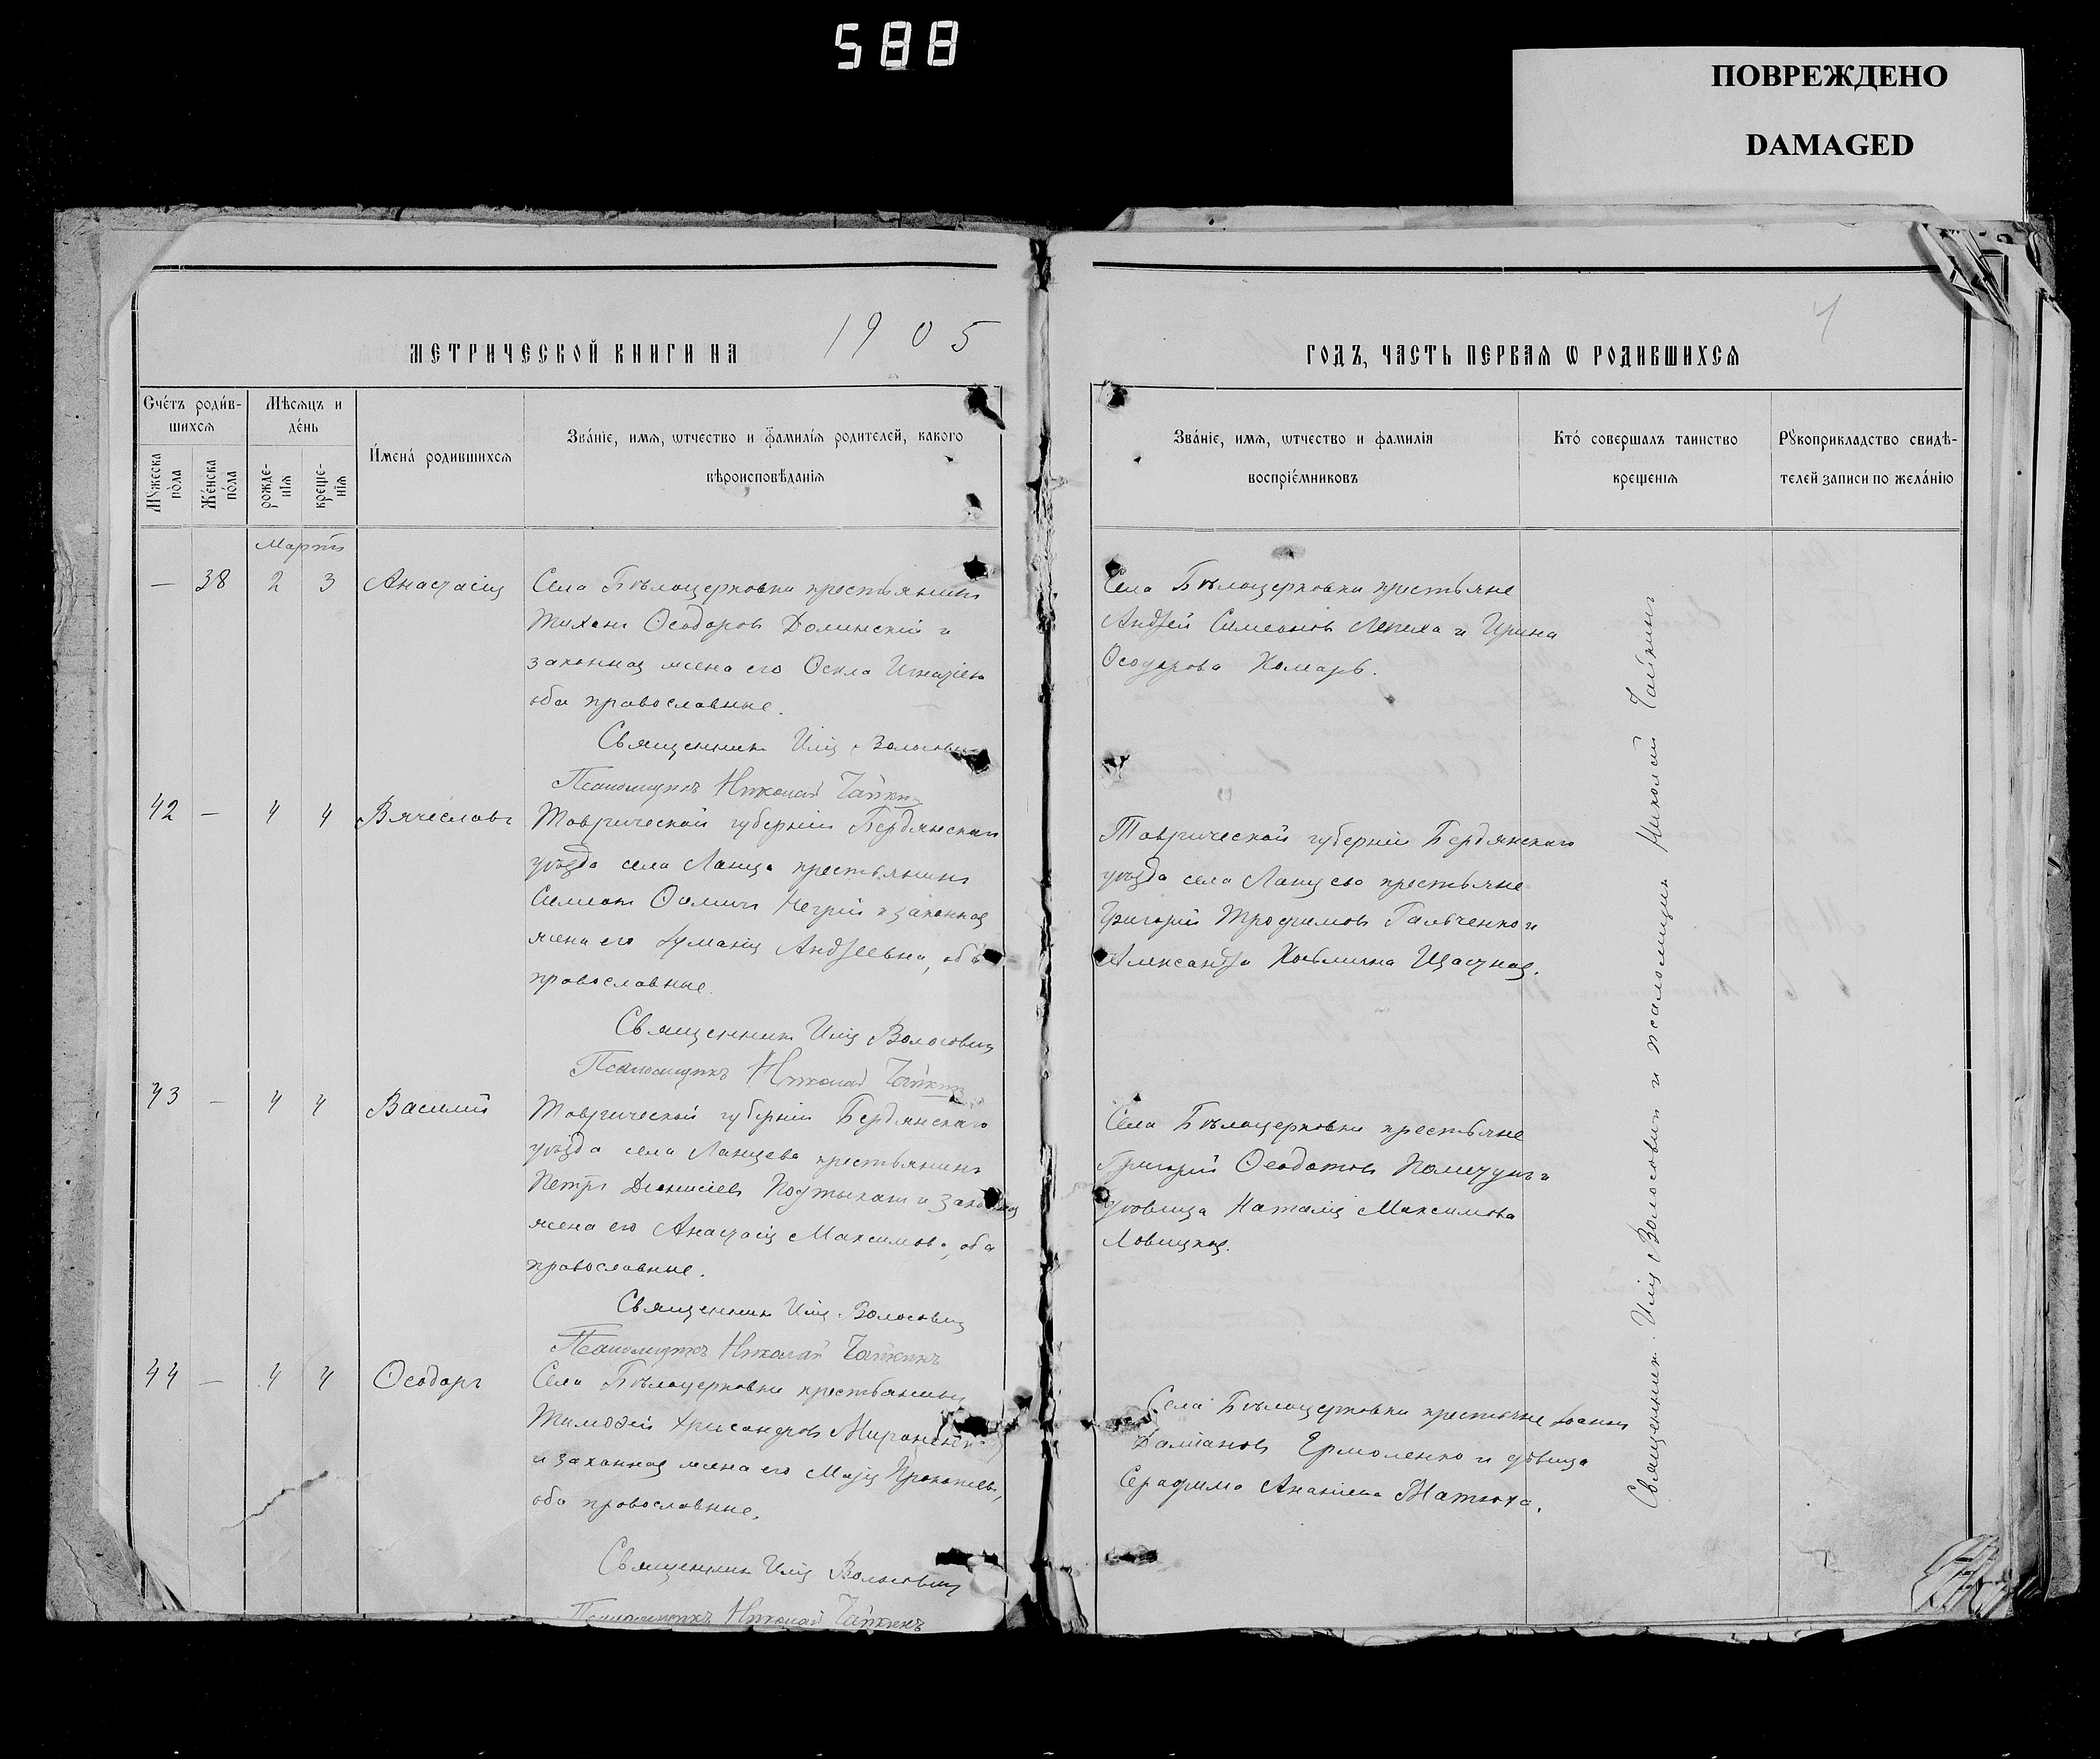 588
ПОВРЕЖДЕНО
DAMAGED
МЕТРИЧЕСКОЙ КНИГИ НА 1905
ГОДЪ, ЧАСТЬ ПЕРВАЯ Ѡ РОДИВШИХСЯ
Счетъ родив-
шихся
Мѣсяцъ и
день
Мужеска
пола
Женска
пола
рожде-
нія
креще-
нія
Имена родившихся
Званіе, имя, ѡтчество и фамилія родителей, какого
вѣроисповѣданія
Званіе, имя, ѡтчество и фамилія
воспріемниковъ
Кто совершалъ таинство
крещенія
Рукоприкладство свидѣ-
телей записи по желанію
Мартъ
— 38 2 3 Анастасія
Села Бѣлоцерковки крестьянинъ
Тихонъ Ѳеодоровъ Долинскій и
законная жена его Ѳекла
оба православные.
Священникъ Илія Волосовичъ
Псаломщикъ Николай Чайкинъ
Села Бѣлоцерковки крестьяне
Андрей Симеоновъ Лепиха и Ирина
Ѳеодорова
42 — 4 4 Вячеславъ
Таврической губерніи Бердянскаго
уѣзда села крестьянинъ
Симеонъ и законная
жена его Андреевна, оба
православные.
Священникъ Илія Волосовичъ
Псаломщикъ Николай Чайкинъ
Таврической губерніи Бердянскаго
уѣзда села крестьяне
Григорій Трофимовъ Гальченко и
Александра
43 — 4 4 Василій
Таврической губерніи Бердянскаго
уѣзда села Ланцева крестьянинъ
Петръ Діонисіевъ и законная
жена его Анастасія Максимова, оба
православные.
Священникъ Илія Волосовичъ
Псаломщикъ Николай Чайкинъ
Села Бѣлоцерковки крестьяне
Григорій Ѳеодотовъ и
дѣвица Наталія Максимова
44 — 4 4 Ѳеодоръ
Села Бѣлоцерковки крестьянинъ
Тимоѳей Мироненко
и законная жена его Марія
оба православные.
Священникъ Илія Волосовичъ
Псаломщикъ Николай Чайкинъ
Села Бѣлоцерковки крестьяне Іоаннъ
Даміановъ Ермоленко и дѣвица
Серафима Ананіева Матюха.
Священникъ Илія Волосовичъ и псаломщикъ Николай Чайкинъ